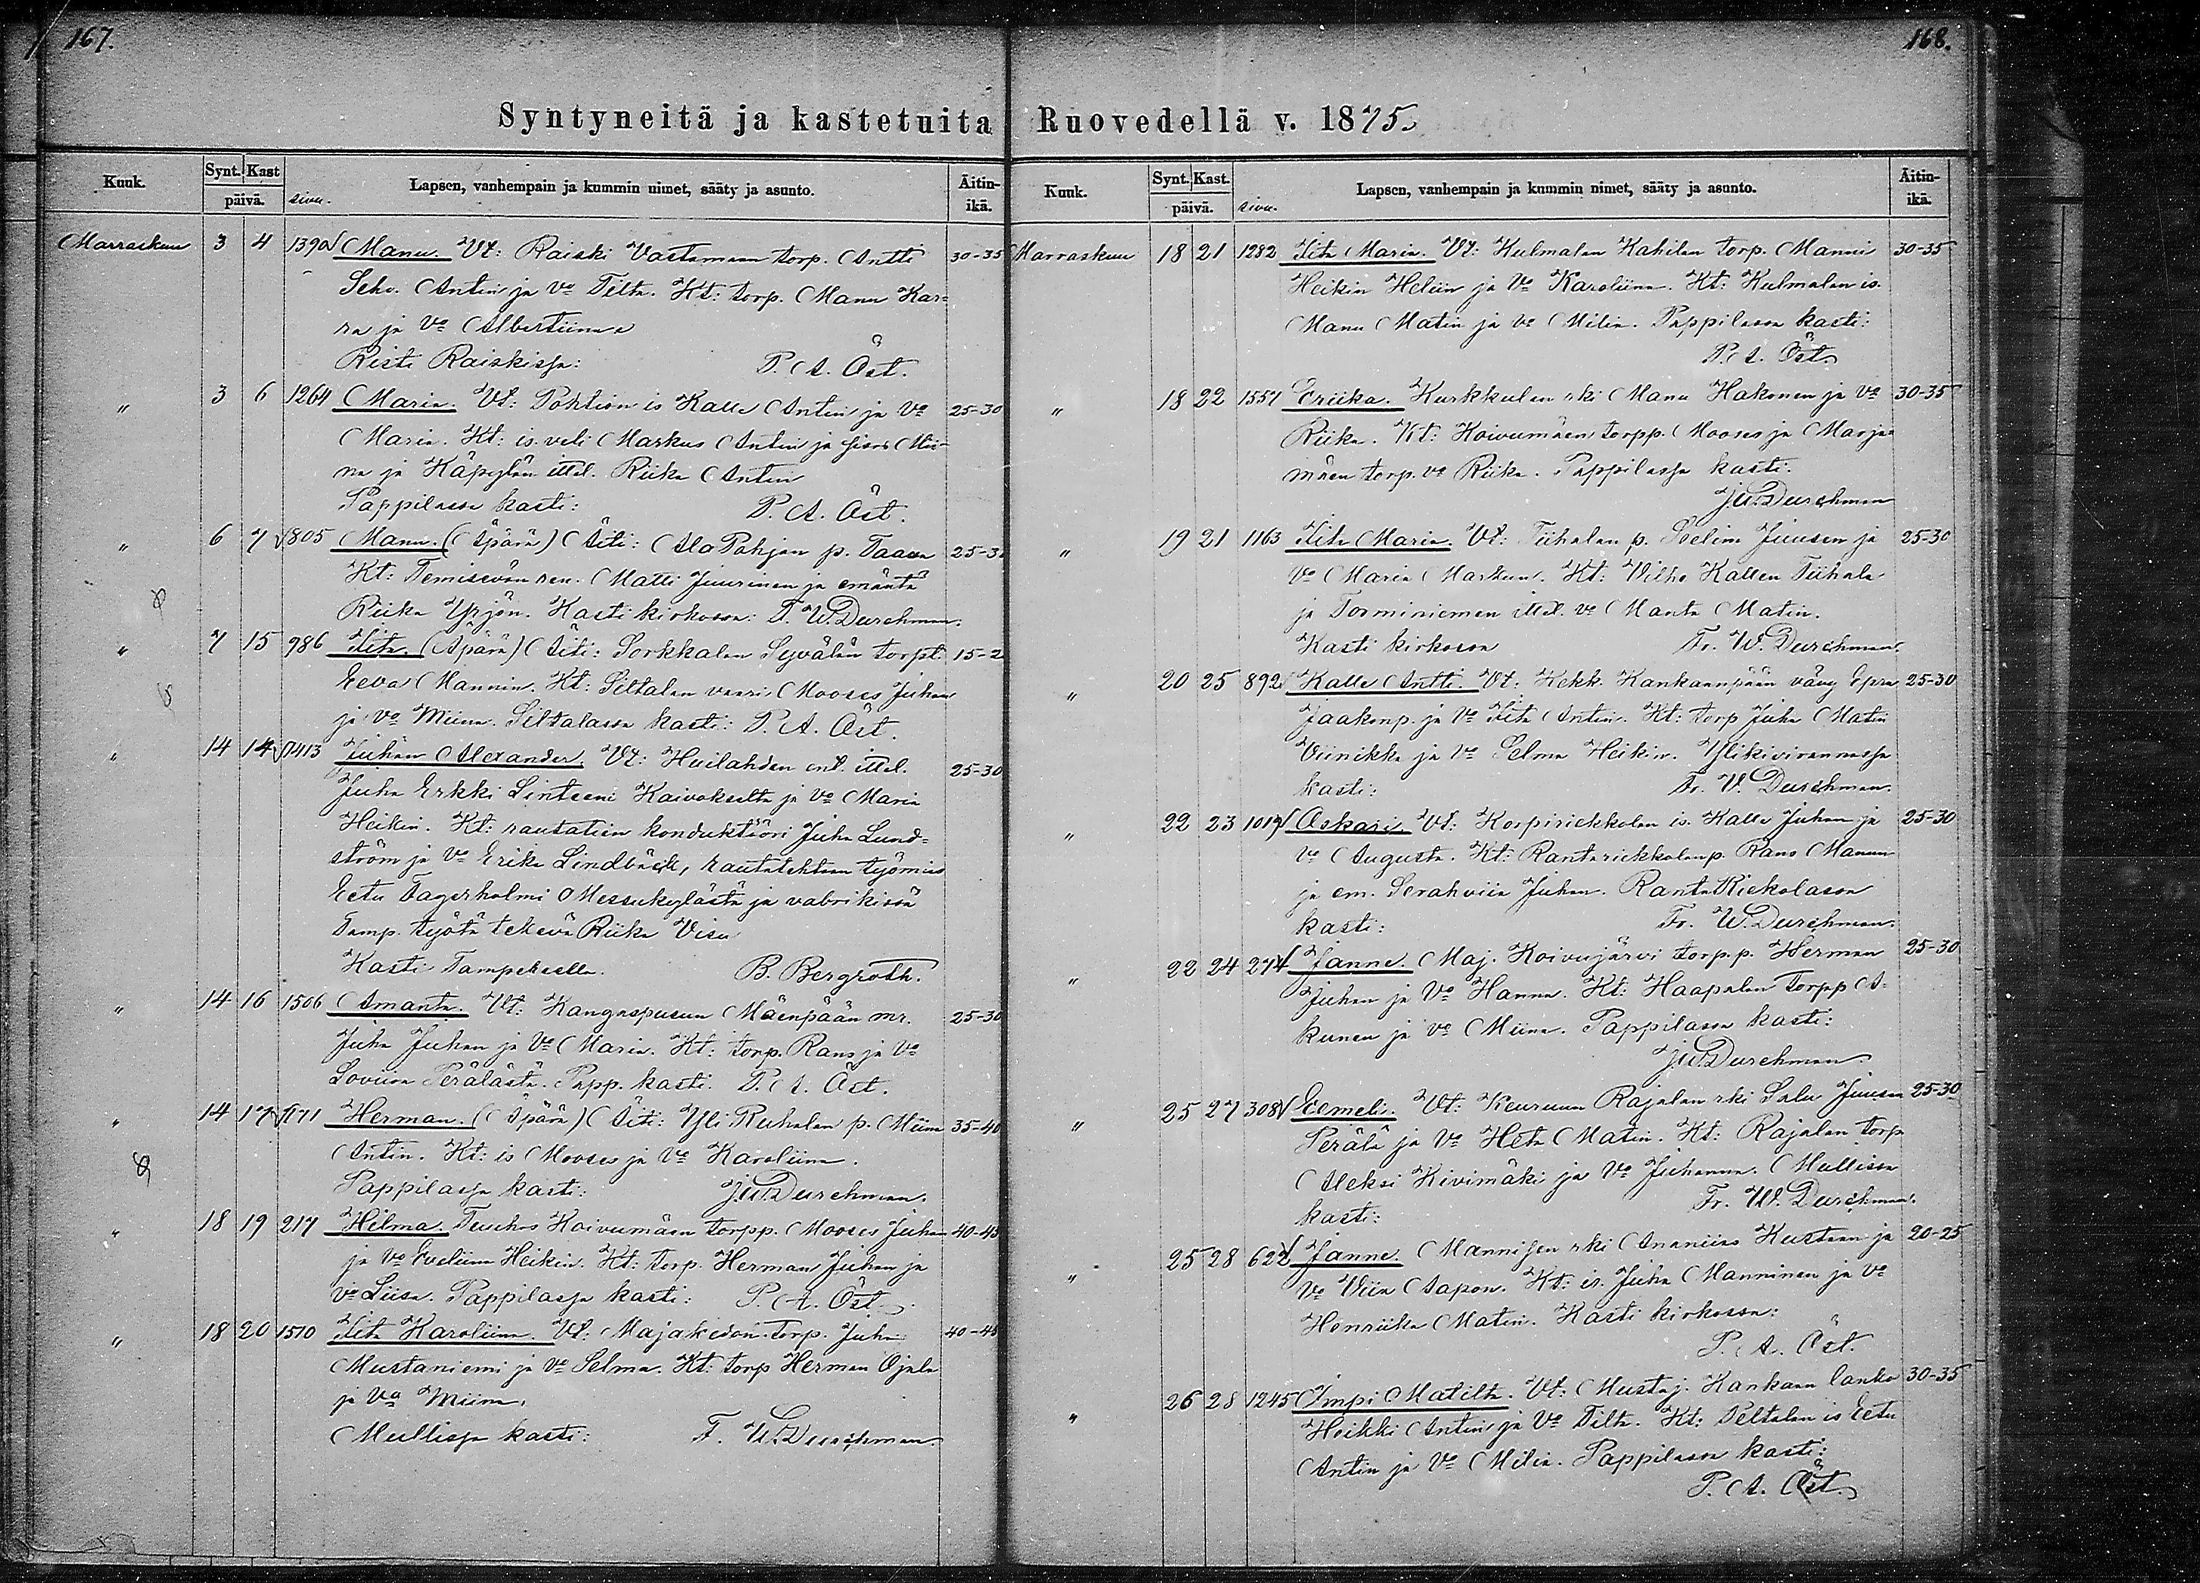 167.
Syntyneitä ja kastetuita
Kuuk. Synt. Kast päivä. sivu. Lapsen, vanhempain ja kummin nimet, sääty ja asunto. Äitin-ikä.
Marraskuu 3 4 1390 Manu. Vt: Raiski Vastamaan torp. Antti 30-35
Antin ja Vo Tilta. Kt: torp. Manu Kar-
ra ja Vo Albertiina
Risti Raiskissa: P. A. Öst.
" 3 6 1264 Maria. Vt: Pohtion is Kalle Antin ja Vo 25-30
Maria. Kt: is. veli Markus Antin ja sisar Mii-
na ja Käpylän ittel. Riika Antin
Pappilassa kasti: P. A. Öst.
" 6 7 805 Manu. (Äpärä) Äiti: Ala Pohjan p. Taava 25-3
Kt: Temisevän ren. Matti Juurinen ja emäntä
Riika Yrjön. Kasti kirkossa: F. W. Durchman.
" 7 15 986 Iita. (Äpärä) Äiti: Sorkkalan Syvälän torpt. 15-2
Eeva Mannin. Kt: Siltalan vaari Mooses Juhan
ja Vo Miina. Siltalassa kasti: P. A. Öst.
" 14 14 1413 Juhan Alexander. Vt: Huilahden ent. ittel. 25-30
Juha Erkki Lintseni Kaivokselta ja Vo Maria
Heikin. Kt: rautatien konduktööri Juha Lund-
ström ja Vo Erika Lindbäck, rautatehtaan työmies
Eetu Fagerholmi Messukylästä ja vabrikissa
Tamp. työtä tekevä Riika Visu
Kasti Tamperella. B. Bergroth.
" 14 16 1506 Amanta. Vt: Kangaspusun Mäenpään mr. 25-30
Juha Juhan ja Vo Maria. Kt: torp. Rans ja Vo
Lovisa Perälästä. Papp. kasti. P. A. Öst.
" 14 17 1171 Herman. (Äpärä) Äiti: Yli Ruhalan p. Miina 35-40
Antin. Kt: is Mooses ja Vo Karoliina.
Pappilassa kasti: JW. Durchman.
" 18 19 217 Hilma. Koivumäen torpp. Mooses Juhan 40-45
ja Vo Eveliina Heikin. Kt: torp. Herman Juhan ja
Vo Liisa. Pappilassa kasti: P. A. Öst.
" 18 20 1510 Iita Karoliina. Vt: Majakedon torp. Juha 40-45
Mustaniemi ja Vo Selma. Kt: torp Herman Ojala
ja Va Miina.
Mullissa kasti: F. W. Durchman.
168.
Ruovedellä v. 1875.
Kuuk. Synt. Kast. päivä. sivu. Lapsen, vanhempain ja kummin nimet, sääty ja asunto. Äitin-ikä.
Marraskuu 18 21 1282 Iita Maria. Vt: Kulmalan Kahilan torp. Manni 30-35
Heikin Helin ja Vo Karoliina. Kt: Kulmalan is.
Manu Matin ja Vo Milia. Pappilassa kasti:
P. A. Öst.
" 18 22 1551 Eriika. Kurkkulan rki Manu Hakonen ja Vo 30-35
Riika. Kt: Koivumäen torpp. Mooses ja Marja-
mäen torp. vo Riika. Pappilassa kasti.
JW. Durchman
" 19 21 1163 Iita Maria. Vt: Tiihalan p. Seelim Juusen ja 25-30
Vo Maria Markun. Kt: Vilho Kallen Tiihala
ja Torminiemen ittel. vo Manta Matin.
Kasti kirkossa Fr. W. Durchman.
" 20 25 892 Kalle Antti. Vt: Kekk. Kankaanpään vävy Epra 25-30
Jaakonp. ja Vo Iita Antin. Kt: torp Juha Matin
Viinikka ja Vo Selma Heikin. Ylikivirannassa
kasti: Fr. W. Durchman.
" 22 23 1019 Oskari. Vt: Korpiriekkolan is. Kalle Juhan ja 25-30
Vo Augusta. Kt: Rantariekkolan p. Rans Manun
ja em. Serahviia Juhan. Ranta Riekolassa
kasti: Fr. W. Durchman.
" 22 24 274 Janne. Maj. Koivujärvi torp. p. Herman 25-30
Juhan ja Vo Hanna. Kt: Haapalan torpp A-
kunen ja vo Miina. Pappilassa kasti:
JW. Durchman.
" 25 27 308 Eemeli. Vt: Keuruun Rajalan rki Salu Juusen 25-30
Perälä ja Vo Heta Matin. Kt: Rajalan torp
Aleksi Kivimäki ja Vo Juhanna. Mullissa
kasti: Fr. W. Durchman.
" 25 28 622 Janne. Mannisen rki Ananias Kustaan ja 20-25
Vo Viia Aapon. Kt: is. Juha Manninen ja Vo
Henriika Matin. Kasti kirkossa:
P. A. Öst.
" 26 28 1245 Impi Matilta. Vt: Mustaj. Kankaan lanko 30-35
Heikki Antin ja Vo Tilta. Kt: Peltalan is Eetu
Antin ja Vo Milia. Pappilassa kasti:
P. A. Öst.